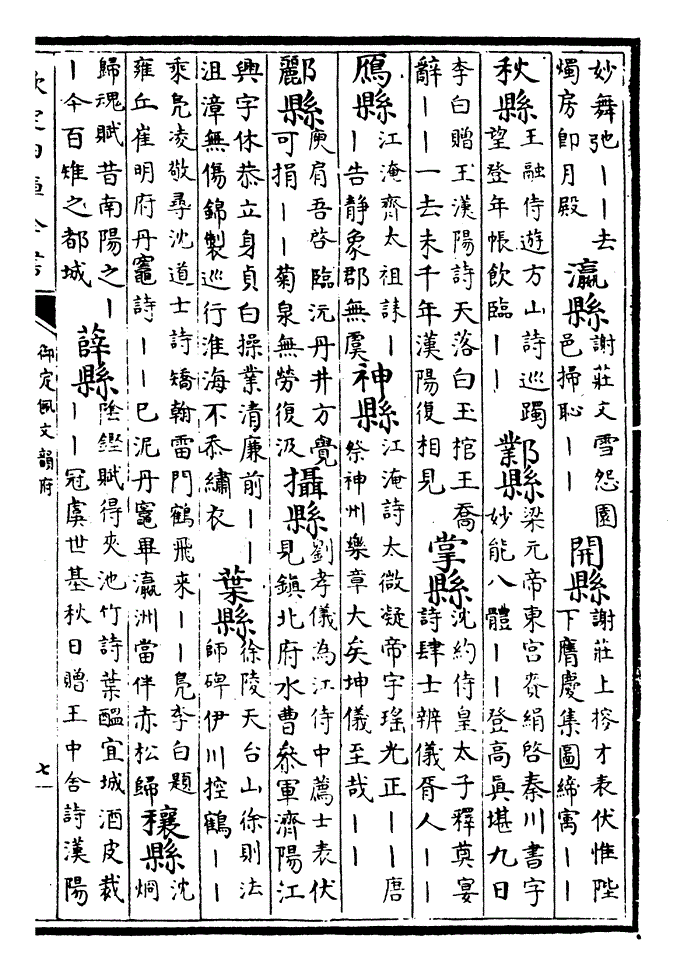 妙舞弛丨丨去
燭房即月殿
瀛縣
謝莊文雪怨園
邑掃恥丨丨
開縣
謝莊上搜才表伏惟陛
下膺慶集圖締寓丨丨
秋縣
王融侍遊方山詩巡躅
望登年帳飲臨丨丨
鄴縣
梁元帝東宮賚絹啓秦川書字
妙能八體丨丨登高真堪九日
李白贈王漢陽詩天落白玉棺王喬
辭丨丨一去未千年漢陽復相見
掌縣
沈約侍皇太子釋奠宴
詩肆士辨儀胥人丨丨
鴈縣
江淹齊太祖誄丨
丨告静象郡無虞
神縣
江淹詩太微凝帝宇瑤光正丨丨唐
祭神州樂章大矣坤儀至哉丨丨
酈縣
庾肩吾啓臨沅丹井方覺
可捐丨丨菊泉無勞復汲
攝縣
劉孝儀為江侍中薦士表伏
見鎮北府水曹叅軍濟陽江
興字休恭立身貞白操業清廉前丨丨
沮漳無傷錦製巡行淮海不忝繡衣
葉縣
徐陵天台山徐則法
師碑伊川控鶴丨丨
乘凫凌敬尋沈道士詩矯翰雷門鶴飛來丨丨凫李白題
雍丘崔明府丹竈詩丨丨巳泥丹竈畢瀛洲當伴赤松歸
穰縣
沈
炯
歸魂賦昔南陽之丨
丨今百雉之都城
薛縣
陰鏗賦得夾池竹詩葉醖宜城酒皮裁
丨丨冠虞世基秋日贈王中舍詩漢陽
欽定四庫全書
御定佩文韻府
七一